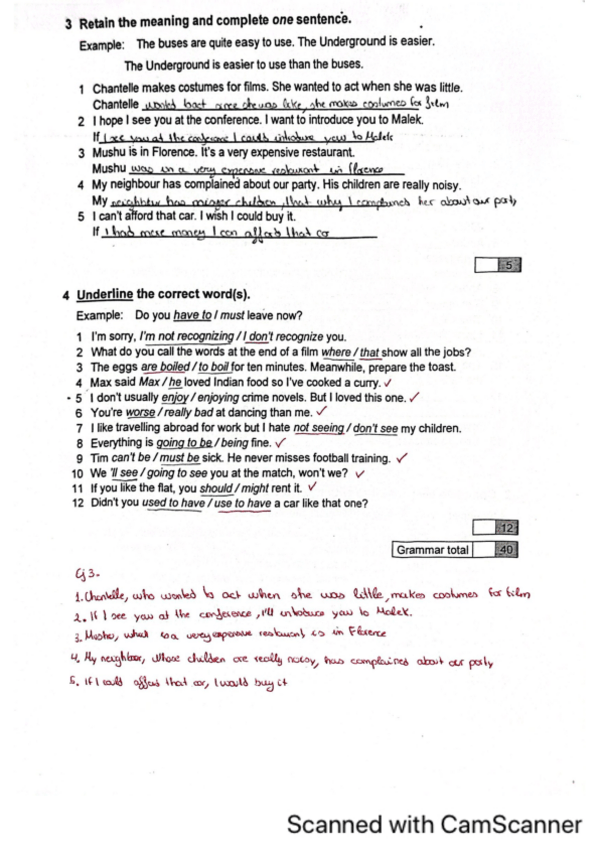 3 Retain the meaning and complete one sentence.
Example: The buses are quite easy to use. The Underground is easier.
The Underground is easier to use than the buses.
1 Chantelle makes costumes for films. She wanted to act when she was little.
Chantelle she makes costumes for film
2 I hope I see you at the conference. I want to introduce you to Malek.
If I see you at the conference I introduce you to Malek
3 Mushu is in Florence. It's a very expensive restaurant.
Mushu was in a very expensive restaurant in florence
4 My neighbour has complained about our party. His children are really noisy.
My has children, that why I her about our party
5 I can't afford that car. I wish I could buy it.
If I had more money I can that
5
4 Underline the correct word(s).
Example: Do you have to / I must leave now?
1 I'm sorry, I'm not recognizing / I don't recognize you.
2 What do you call the words at the end of a film where / that show all the jobs?
3 The eggs are boiled / to boil for ten minutes. Meanwhile, prepare the toast.
4 Max said Max / he loved Indian food so I've cooked a curry. ✓
5 I don't usually enjoy / enjoying crime novels. But I loved this one. ✓
6 You're worse / really bad at dancing than me. ✓
7 I like travelling abroad for work but I hate not seeing / don't see my children.
8 Everything is going to be / being fine. ✓
9 Tim can't be / must be sick. He never misses football training. ✓
10 We 'll see / going to see you at the match, won't we? ✓
11 If you like the flat, you should / might rent it. ✓
12 Didn't you used to have / use to have a car like that one?
12
Grammar total 40
1. Chantelle, who wanted to act when she was little, makes costumes for film
2. If I see you at the conference, I'll introduce you to Malek.
3. Mushu, a very expensive restaurant, is in
4. My neighbor, whose children are really noisy, has complained about our party
5. If I could that car, I would buy it
Scanned with CamScanner